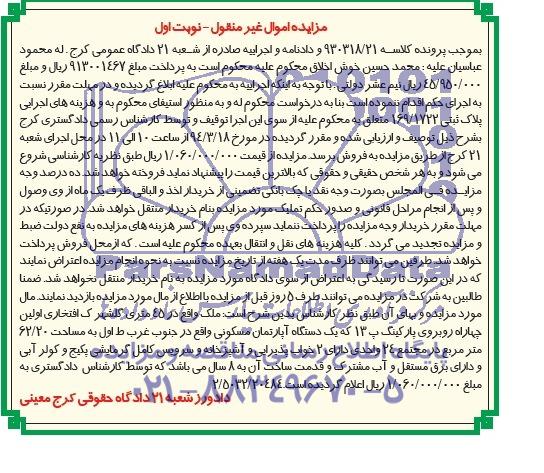 مزایده اموال غیر منقول - نوبت اول
بموجب پرونده کلاسه ۹۳۰۳۱۸/۲۱ و دادنامه و اجراییه صادره از شعبه ۲۱ دادگاه عمومی کرج . له محمود
عباسیان علیه : محمد حسین خوش اخلاق محکوم علیه محکوم است به پرداخت مبلغ ۹۱۳۰۰۱۴۶۷ ریال و مبلغ
۴۵/۹۵۰/۰۰۰ ریال نیم عشر دولتی . با توجه به اینکه اجراییه به محکوم علیه ابلاغ گردیده و در مهلت مقرر نسبت
به اجرای حکم اقدام ننموده است بنا به درخواست محکوم له و به منظور استیفای محکوم به و هزینه های اجرایی
پلاک ثبتی ۱۶۹/۱۷۲۲ متعلق به محکوم علیه از سوی این اجرا توقیف و توسط کارشناس رسمی دادگستری کرج
بشرح ذیل توصیف و ارزیابی شده و مقرر گردیده در مورخ ۹۴/۳/۱۸ از ساعت ۱۰ الی ۱۱ در محل اجرای شعبه
۲۱ کرج از طریق مزایده به فروش برسد. مزایده از قیمت ۱/۰۶۰/۰۰۰/۰۰۰ ریال طبق نظریه کارشناسی شروع
می شود و به هر شخص حقیقی و حقوقی که بالاترین قیمت را پیشنهاد نماید فروخته خواهد شد. ده درصد وجه
مزایده فی المجلس بصورت وجه نقد یا چک بانکی تضمینی از خریدار اخذ و الباقی ظرف یک ماه از وی وصول
و پس از انجام مراحل قانونی و صدور حکم تملیک مورد مزایده بنام خریدار منتقل خواهد شد. در صورتیکه در
مهلت مقرر خریدار وجه مزایده را پرداخت ننماید سپرده وی پس از کسر هزینه های مزایده به نفع دولت ضبط
و مزایده تجدید می گردد . کلیه هزینه های نقل و انتقال بعهده محکوم علیه است . که از محل فروش پرداخت
خواهد شد. طرفین می توانند ظرف مدت یک هفته از تاریخ مزایده نسبت به نحوه انجام مزایده اعتراض نمایند
که در این صورت تا رسیدگی به اعتراض از سوی دادگاه مورد مزایده به نام خریدار منتقل نخواهد شد. ضمنا
طالبین به شرکت در مزایده می توانند ظرف ۵ روز قبل از مزایده با اطلاع از مال مورد مزایده بازدید نمایند. مال
مورد مزایده و بهای آن طبق نظر کارشناس بدین شرح است. ملک واقع در ۴۵ متری گلشهر ک افتخاری اولین
چهارراه روبروی پارکینگ پ ۱۳ که یک دستگاه آپارتمان مسکونی واقع در جنوب غرب ط اول به مساحت ۶۲/۲۰
متر مربع در مجتمع ۲۴ واحدی دارای ۲ خواب پذیرایی و آشپزخانه و سرویس کامل گرمایشی پکیج و کولر آبی
و دارای برق مستقل و آب مشترک و قدمت ساخت آن به ۸ سال می باشد که توسط کارشناس دادگستری به
مبلغ ۱/۰۶۰/۰۰۰/۰۰۰ ریال اعلام گردیده است. ۲/۵۰۳۲/۲۰۴۸۴
دادورز شعبه ۲۱ دادگاه حقوقی کرج معینی
ParsNamadData
پایگاه اطلاع رسانی مناقصه و مزایده
۰۲۱-۸۸۳۴۹۶۷۰-۵